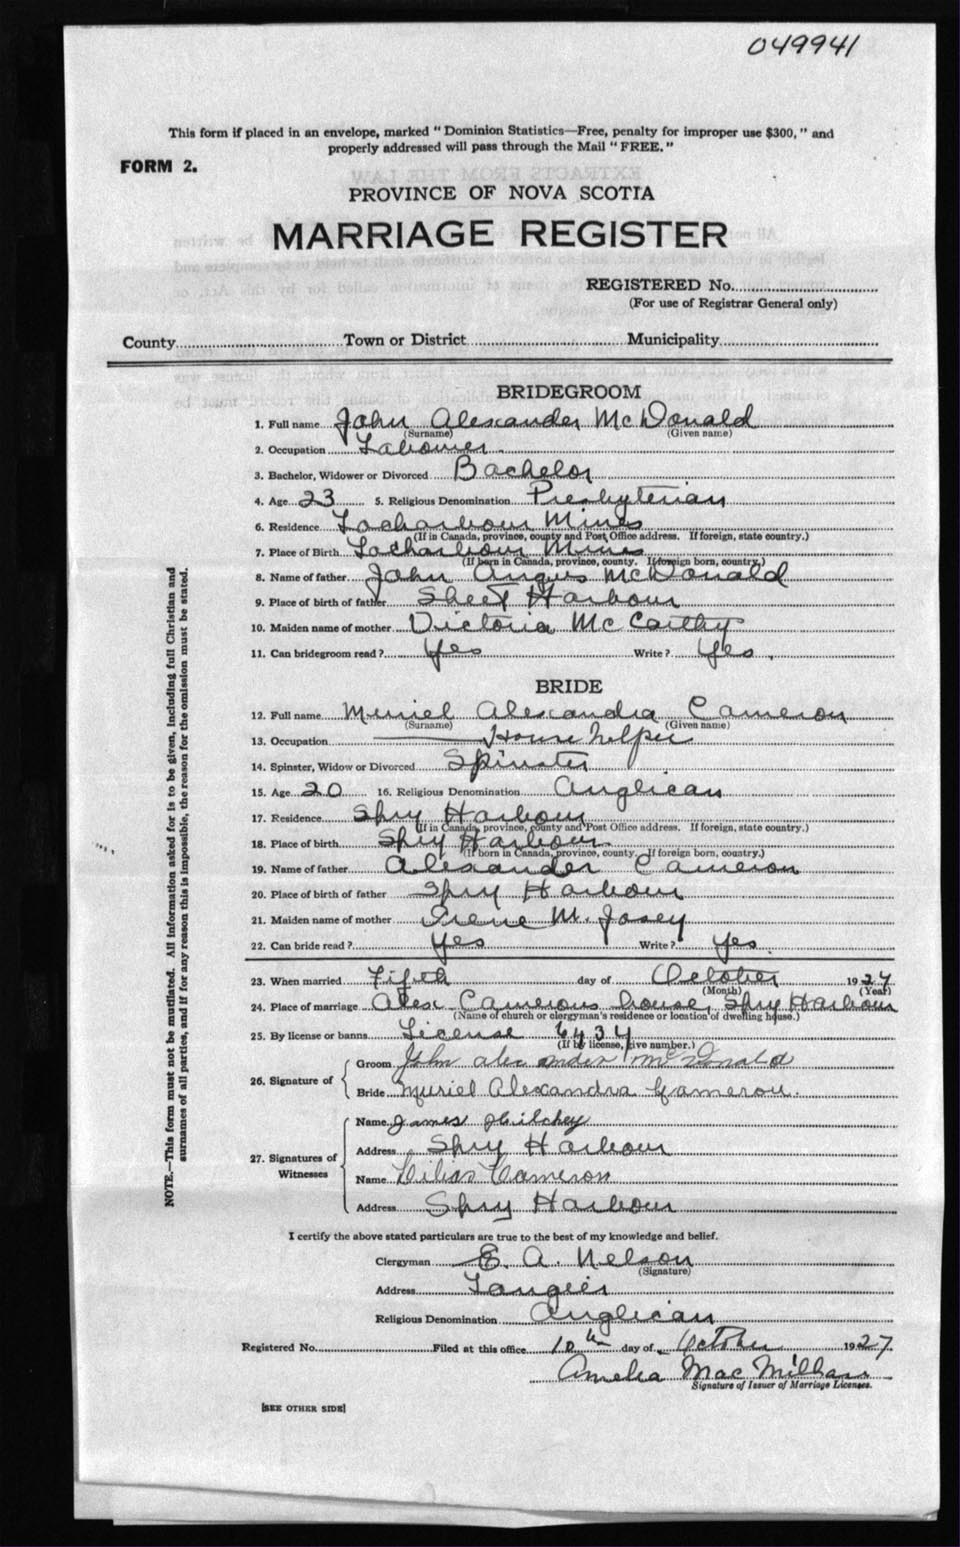 049941
This form if placed in an envelope, marked "Dominion Statistics—Free, penalty for improper use $300," and
properly addressed will pass through the Mail "FREE."
FORM 2.
PROVINCE OF NOVA SCOTIA
MARRIAGE REGISTER
REGISTERED No.
(For use of Registrar General only)
County Town or District Municipality
BRIDEGROOM
1. Full name John Alexander McDonald
(Surname) (Given name)
2. Occupation Labourer
3. Bachelor, Widower or Divorced Bachelor
4. Age 23 5. Religious Denomination Presbyterian
6. Residence Mines
(If in Canada, province, county and Post Office address. If foreign, state country.)
7. Place of Birth Mines
(If born in Canada, province, county. If foreign born, country.)
8. Name of father John Angus McDonald
9. Place of birth of father Sheet Harbour
10. Maiden name of mother Victoria McCarthy
11. Can bridegroom read? Yes Write? Yes.
BRIDE
12. Full name Muriel Alexandra Cameron
(Surname) (Given name)
13. Occupation House helper
14. Spinster, Widow or Divorced Spinster
15. Age 20 16. Religious Denomination Anglican
17. Residence Spry Harbour
(If in Canada, province, county and Post Office address. If foreign, state country.)
18. Place of birth Spry Harbour
(If born in Canada, province, county. If foreign born, country.)
19. Name of father Alexander Cameron
20. Place of birth of father Spry Harbour
21. Maiden name of mother Irene M. Josey
22. Can bride read? Yes Write? Yes.
23. When married Fifth day of October 1927
(Month) (Year)
24. Place of marriage Alex Camerons house, Spry Harbour
(Name of church or clergyman's residence or location of dwelling house.)
25. By license or banns License 6434
(If by license, give number.)
26. Signature of
Groom John alexander McDonald
Bride Muriel Alexandra Cameron.
27. Signatures of Witnesses
Name James
Address Spry Harbour
Name Cameron
Address Spry Harbour
I certify the above stated particulars are true to the best of my knowledge and belief.
Clergyman E. A. Nelson
(Signature)
Address Tangier
Religious Denomination Anglican
Registered No. Filed at this office 10th day of October 1927.
Amelia MacMillan
Signature of Issuer of Marriage Licenses.
[SEE OTHER SIDE]
NOTE.—This form must not be mutilated. All information asked for is to be given, including full Christian and
surnames of all parties, and if for any reason this is impossible, the reason for the omission must be stated.